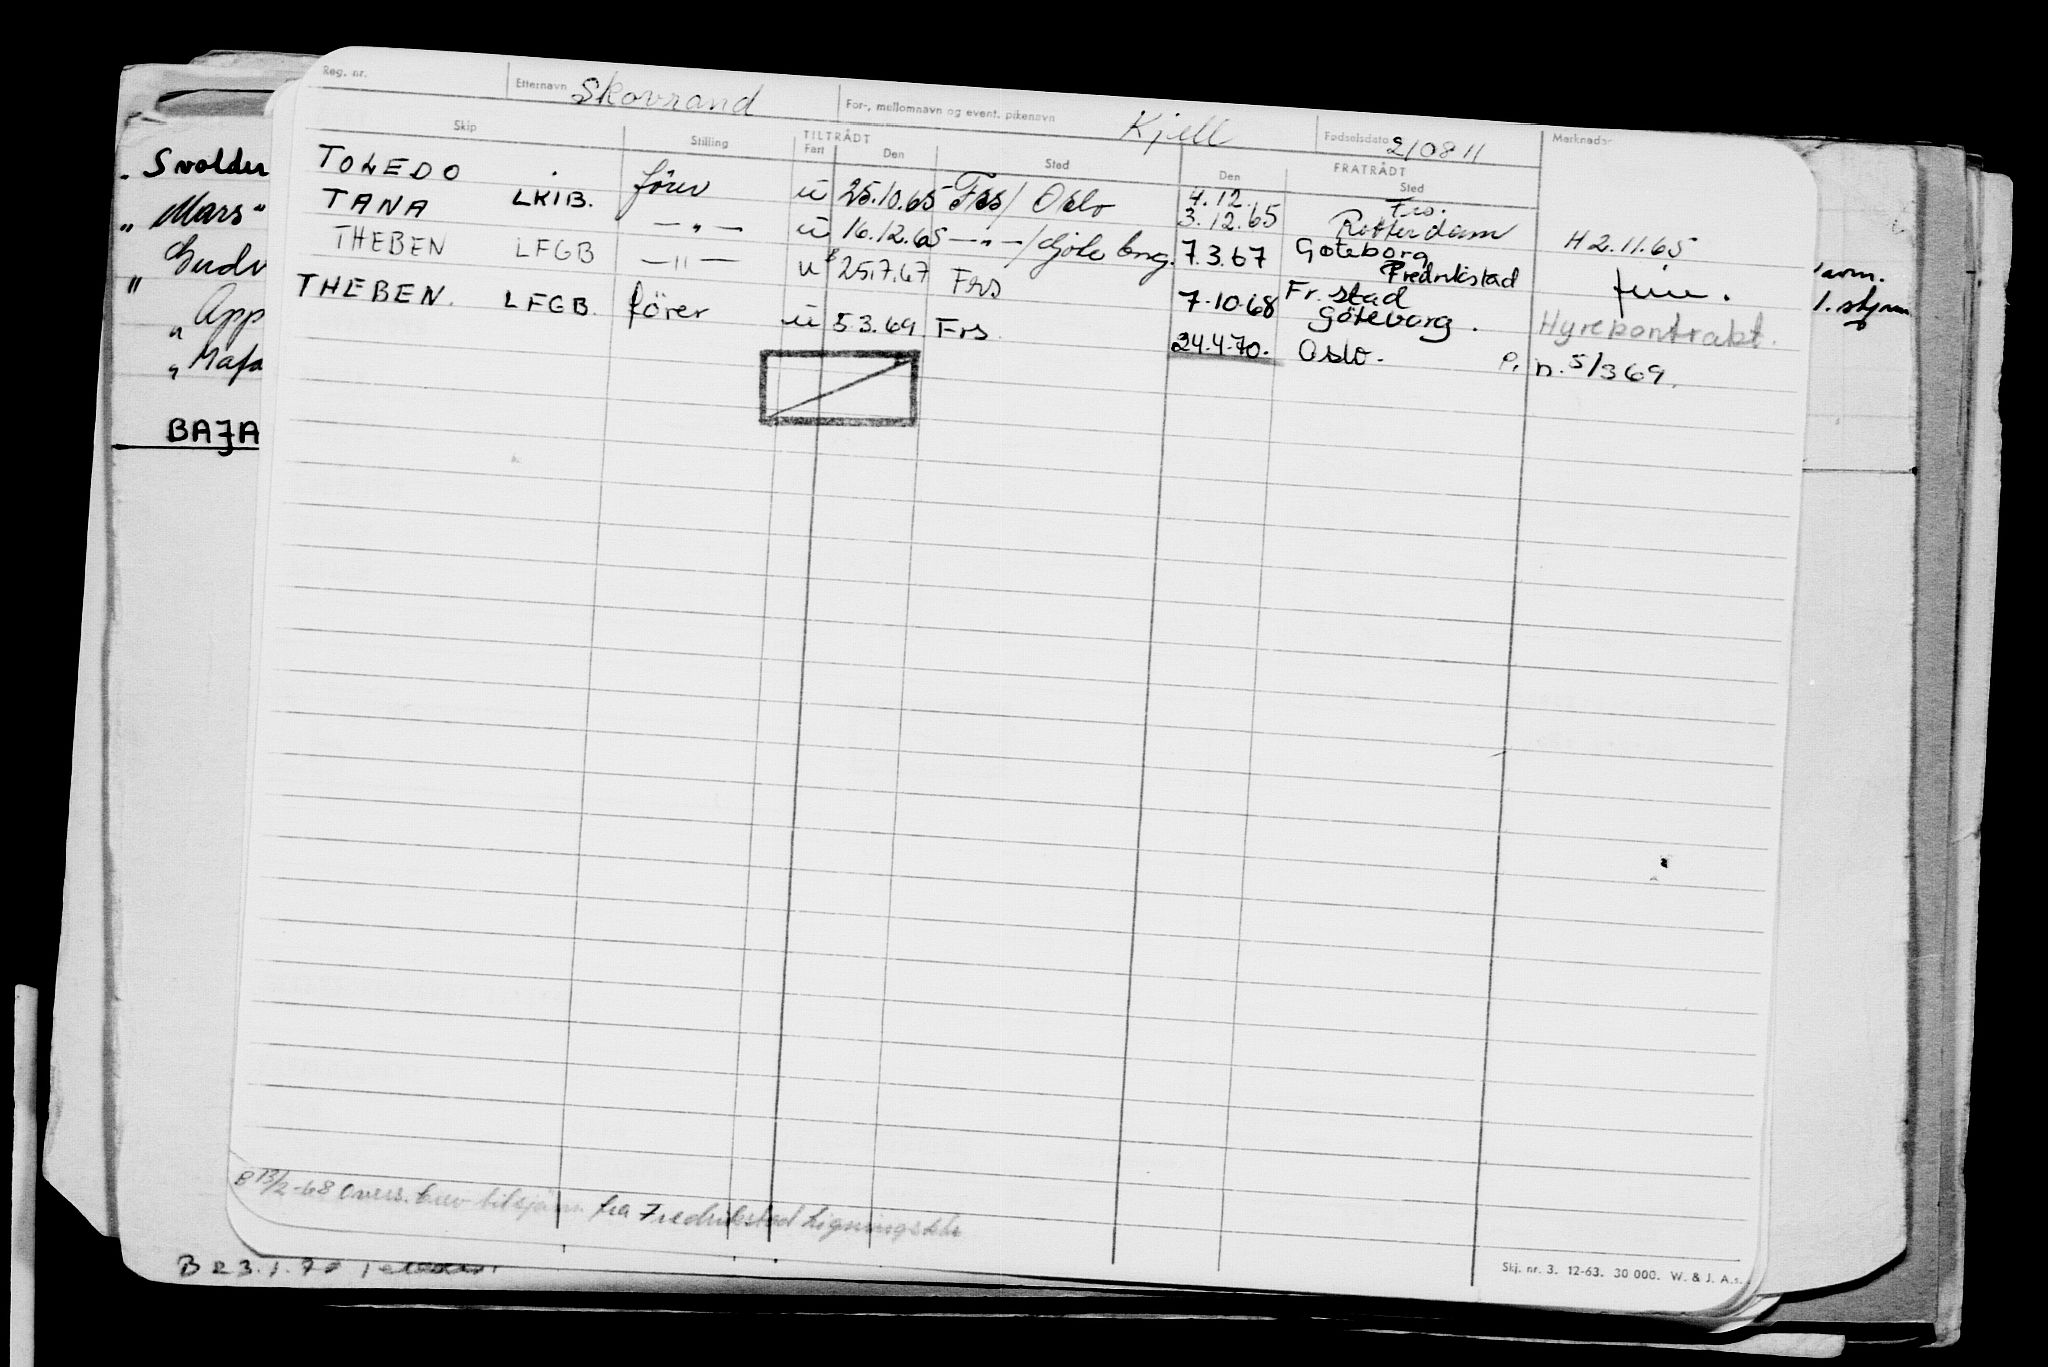 Reg. nr. Etternavn Skovrand For-, mellomnavn og event. pikenavn Kjell Fødselsdato 210811 Merknader
Skip Stilling TILTRÅDT FRATRÅDT
Fart Den Sted Den Sted
TOLEDO förer u 25.10.65 Frs/ Oslo 4.12. Frs.
3.12.65 Rotterdam H 2.11.65
TANA LKIB. — " — u 16.12.65 — " — / Göteborg. 7.3.67 Göteborg
THEBEN LFGB — " — u 25.7.67 Frs Fredrikstad ferie.
7.10.68 Fr.stad
THEBEN. LFGB. förer u 5.3.69 Frs. Göteborg. Hyrekontrakt.
24.4.70. Oslo. P.n. 5/3 69.
Svolder
" Mars "
" Gudv
" App
" Mafa
BAJA
avm.
1. styrm
B 13/2-68 overs. brev fra Fredrikstad Ligningsktr
B 23.1.70
Skj. nr. 3. 12-63. 30 000. W. & J. A.s.